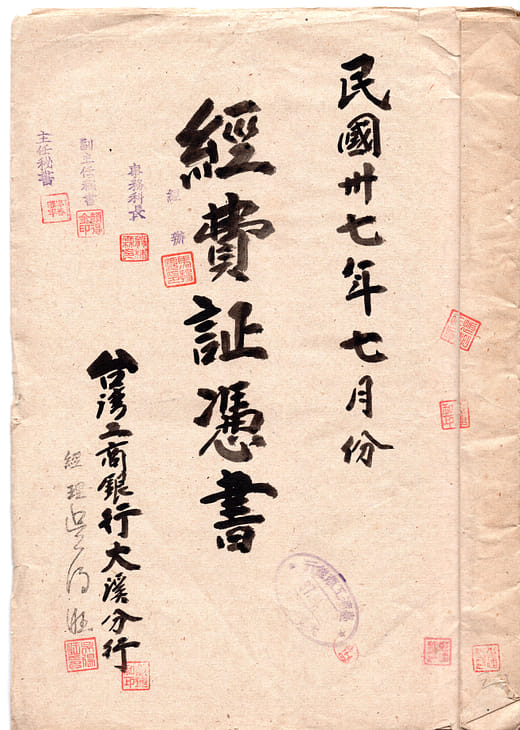 民國卅七年七月份
經費証憑書
經辦
專務科長
副主任秘書
主任秘書
台湾工商銀行大溪分行
經理